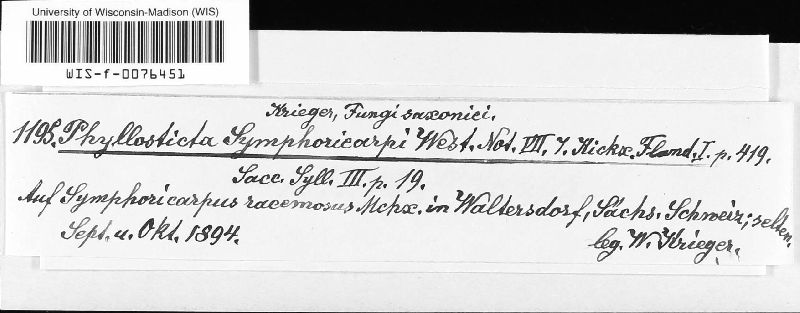 University of Wisconsin-Madison (WIS)
WIS-f-0076451
Krieger, Fungi saxonici.
1195. Phyllosticta Symphoricarpi West. Not. VII, 7. Kickx. Fland. I. p. 419.
Sacc. Syll. III. p. 19.
Auf Symphoricarpus racemosus Mchx. in Waltersdorf, Sächs. Schweiz; selten.
Sept. u. Okt. 1894.
leg. W. Krieger.